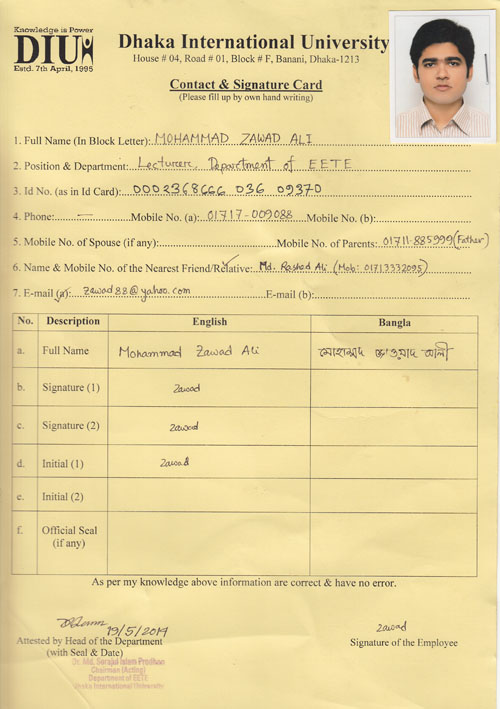 Knowledge is Power
DIU
Estd. 7th April, 1995
Dhaka International University
House # 04, Road # 01, Block # F, Banani, Dhaka-1213
Contact & Signature Card
(Please fill up by own hand writing)
1. Full Name (In Block Letter): MOHAMMAD ZAWAD ALI
2. Position & Department: Lecturer, Department of EETE
3. Id No. (as in Id Card): 0002368666 036 09370
4. Phone: — Mobile No. (a): 01717-009088 Mobile No. (b):
5. Mobile No. of Spouse (if any): Mobile No. of Parents: 01711-885999 (Father)
6. Name & Mobile No. of the Nearest Friend/Relative: Md. Rashed Ali (Mob: 01713332095)
7. E-mail (a): zawad88@yahoo.com E-mail (b):
No. Description English Bangla
a. Full Name Mohammad Zawad Ali মোহাম্মদ জাওয়াদ আলী
b. Signature (1) Zawad
c. Signature (2) Zawad
d. Initial (1) Zawad
e. Initial (2)
f. Official Seal
(if any)
As per my knowledge above information are correct & have no error.
19/5/2014 Zawad
Attested by Head of the Department Signature of the Employee
(with Seal & Date)
Dr. Md. Serajul Islam Prodhan
Chairman (Acting)
Department of EETE
Dhaka International University